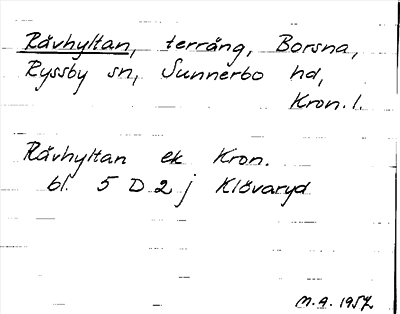 Råvhyltan, terräng, Borsna,
Ryssby sn, Sunnerbo hd,
Kron. l.
Råvhyltan ek Kron.
bl. 5 D 2 j Klövaryd
M.A. 1957